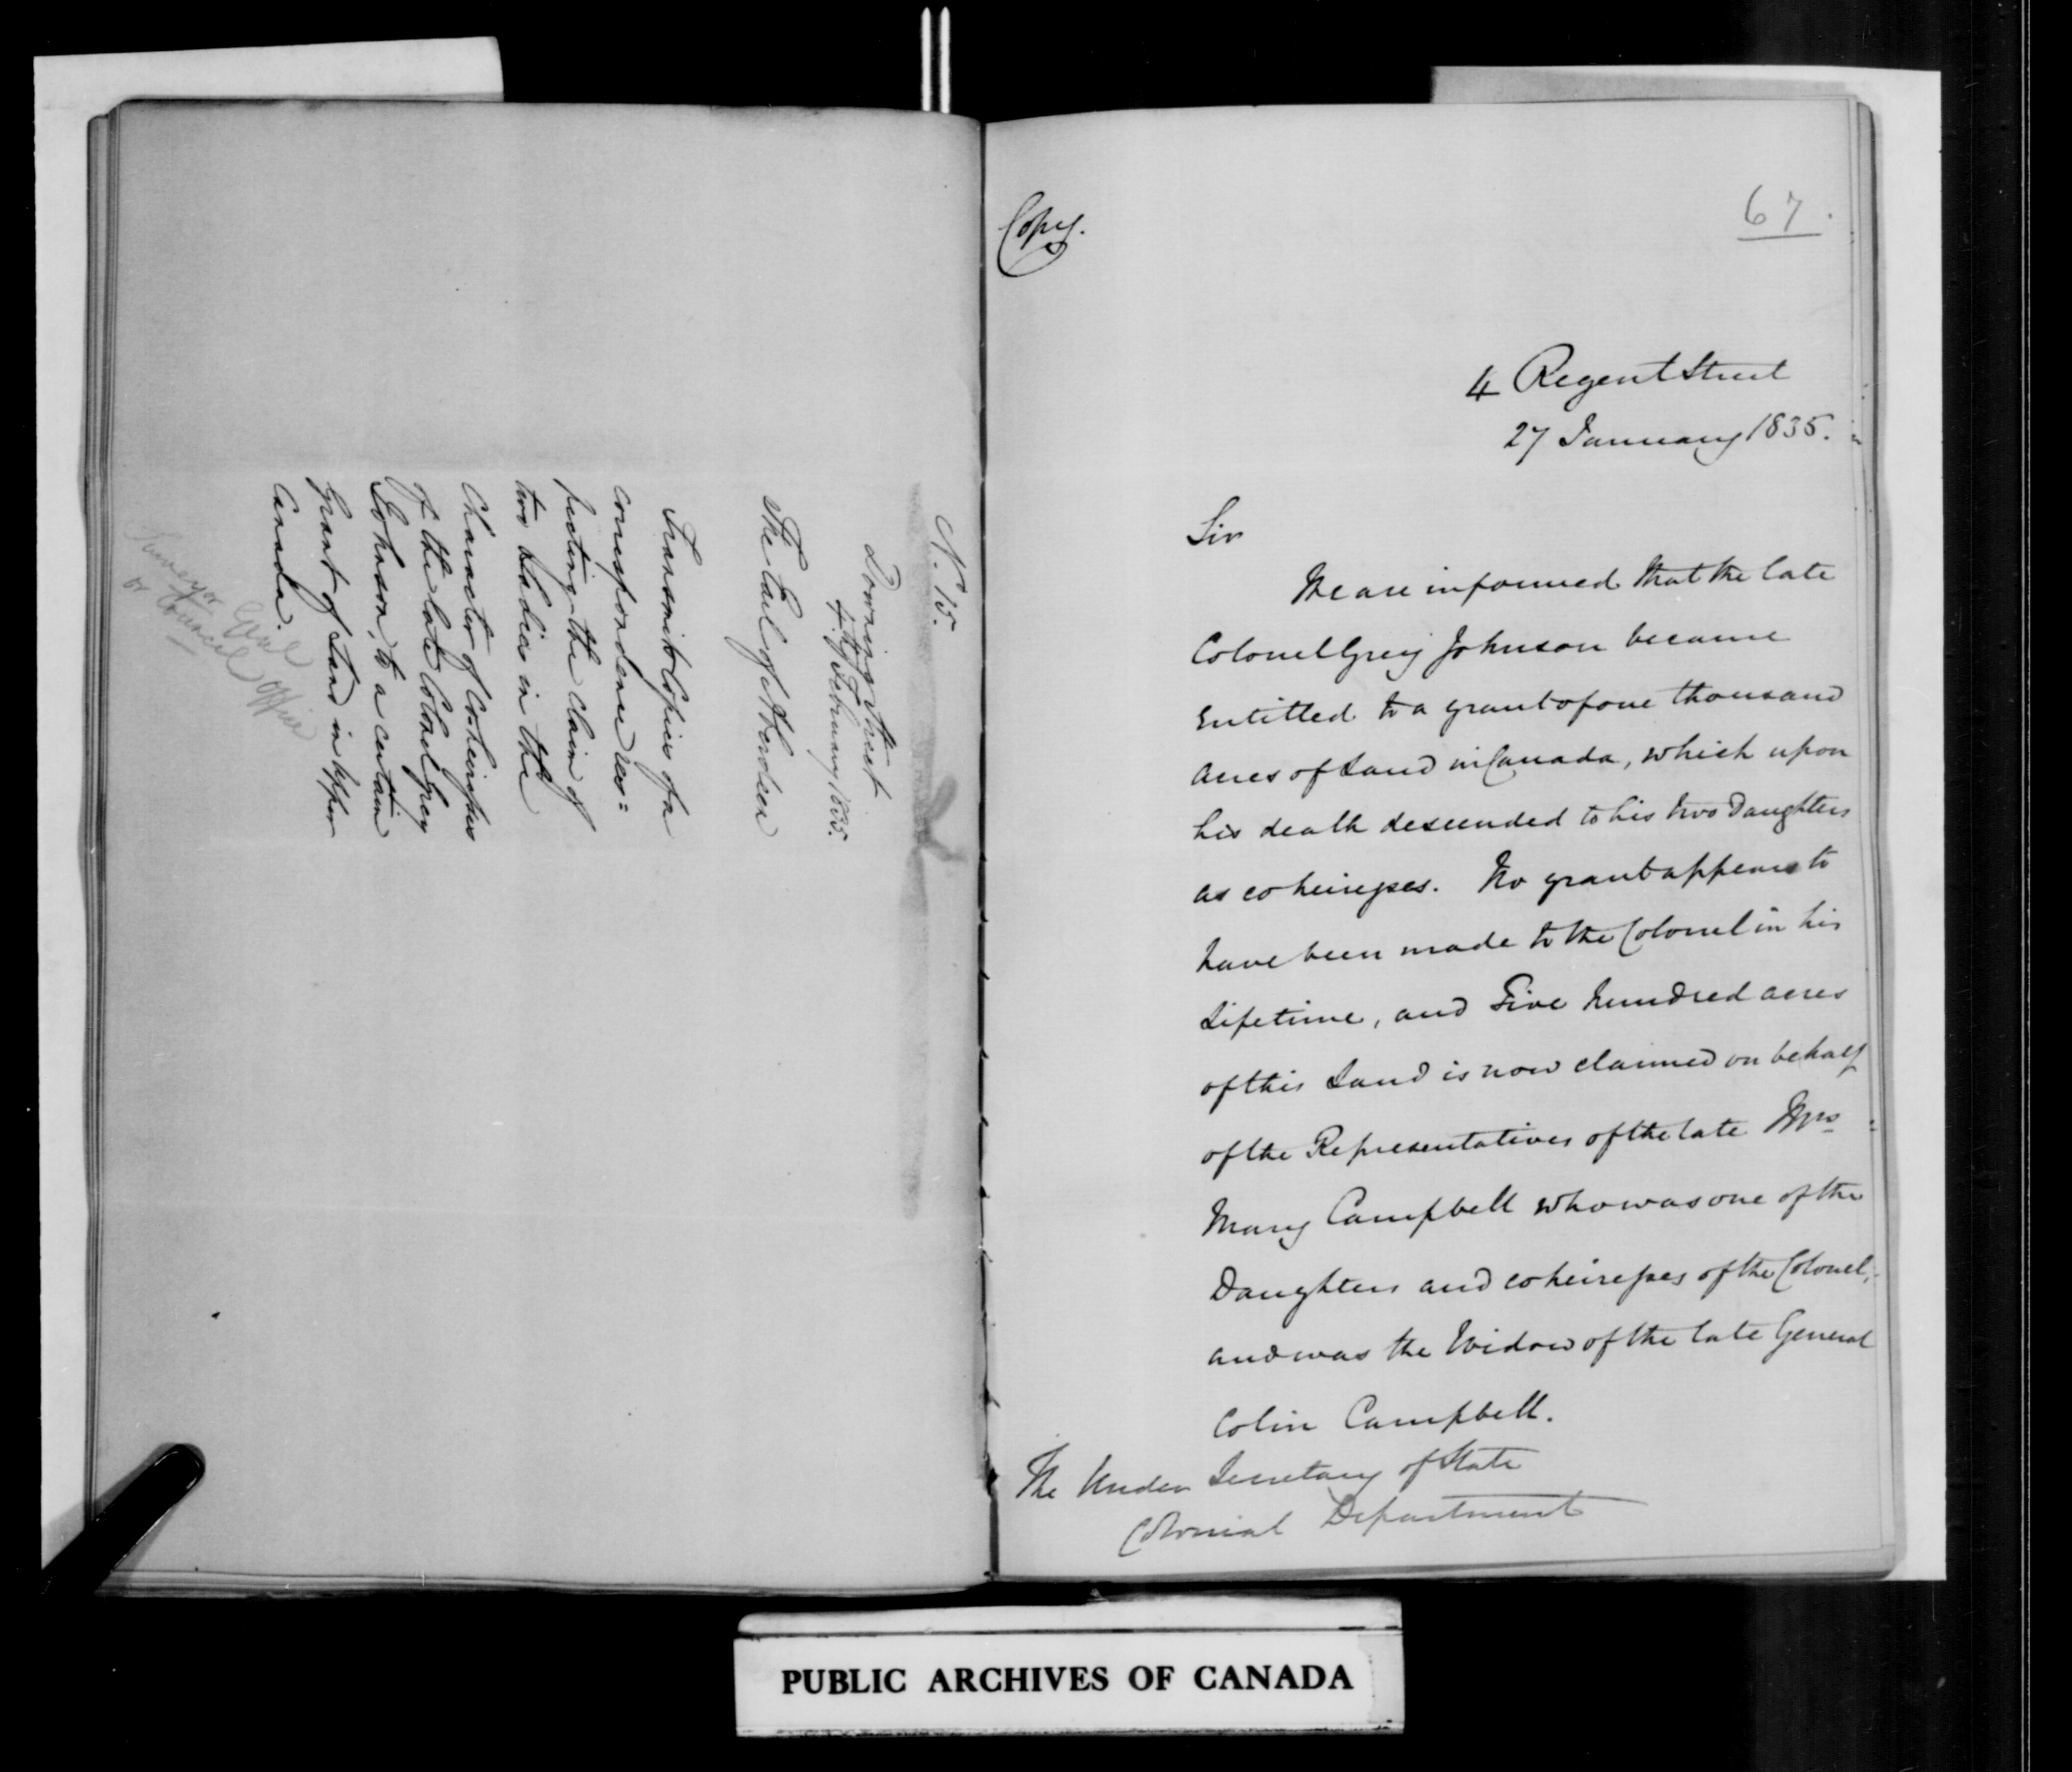 N.º 15.
Downing Street
4.th February 1835.
The Earl of Aberdeen
Transmits Copies of a
correspondence res=
pecting the claim of
two Ladies in the
Character of Coheiresses
of the late Colonel Grey
Johnson, to a certain
Grant of Land in Upper
Canada.
Surveyor Genl
or Council Office
Copy.
67.
4 Regent Street
27 January 1835.
Sir
We are informed that the late
Colonel Grey Johnson became
entitled to a grant of one thousand
acres of Land in Canada, which upon
his death descended to his two Daughters
as coheiresses. No grant appears to
have been made to the Colonel in his
Lifetime, and Five hundred acres
of this Land is now claimed on behalf
of the Representatives of the late Mrs
Mary Campbell who was one of the
Daughters and coheiresses of the Colonel,
and was the Widow of the late General
Colin Campbell.
The Under Secretary of State
Colonial Department
PUBLIC ARCHIVES OF CANADA